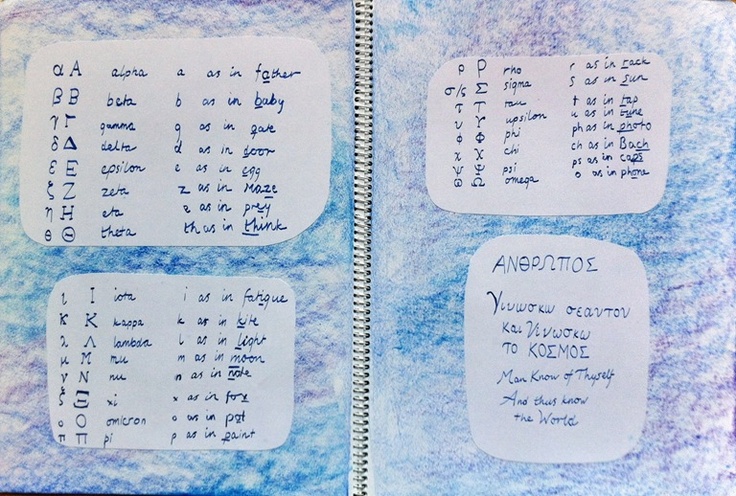 α Α alpha a as in father
β Β beta b as in baby
γ Γ gamma g as in gate
δ Δ delta d as in door
ε Ε epsilon e as in egg
ζ Ζ zeta z as in maze
η Η eta e as in prey
θ Θ theta th as in think
ι Ι iota i as in fatigue
κ Κ kappa k as in kite
λ Λ lambda l as in light
μ Μ mu m as in moon
ν Ν nu n as in note
ξ Ξ xi x as in fox
ο Ο omicron o as in pot
π Π pi p as in paint
ρ Ρ rho r as in rack
σ/ς Σ sigma s as in sun
τ Τ tau t as in tap
υ Υ upsilon u as in tune
φ Φ phi ph as in photo
χ Χ chi ch as in Bach
ψ Ψ psi ps as in caps
Ω omega o as in phone
ΑΝΘΡΩΠΟΣ
Γινωσκω σεαυτον
και Γινωσκω
το ΚΟΣΜΟΣ
Man Know of Thyself
And thus know
the World